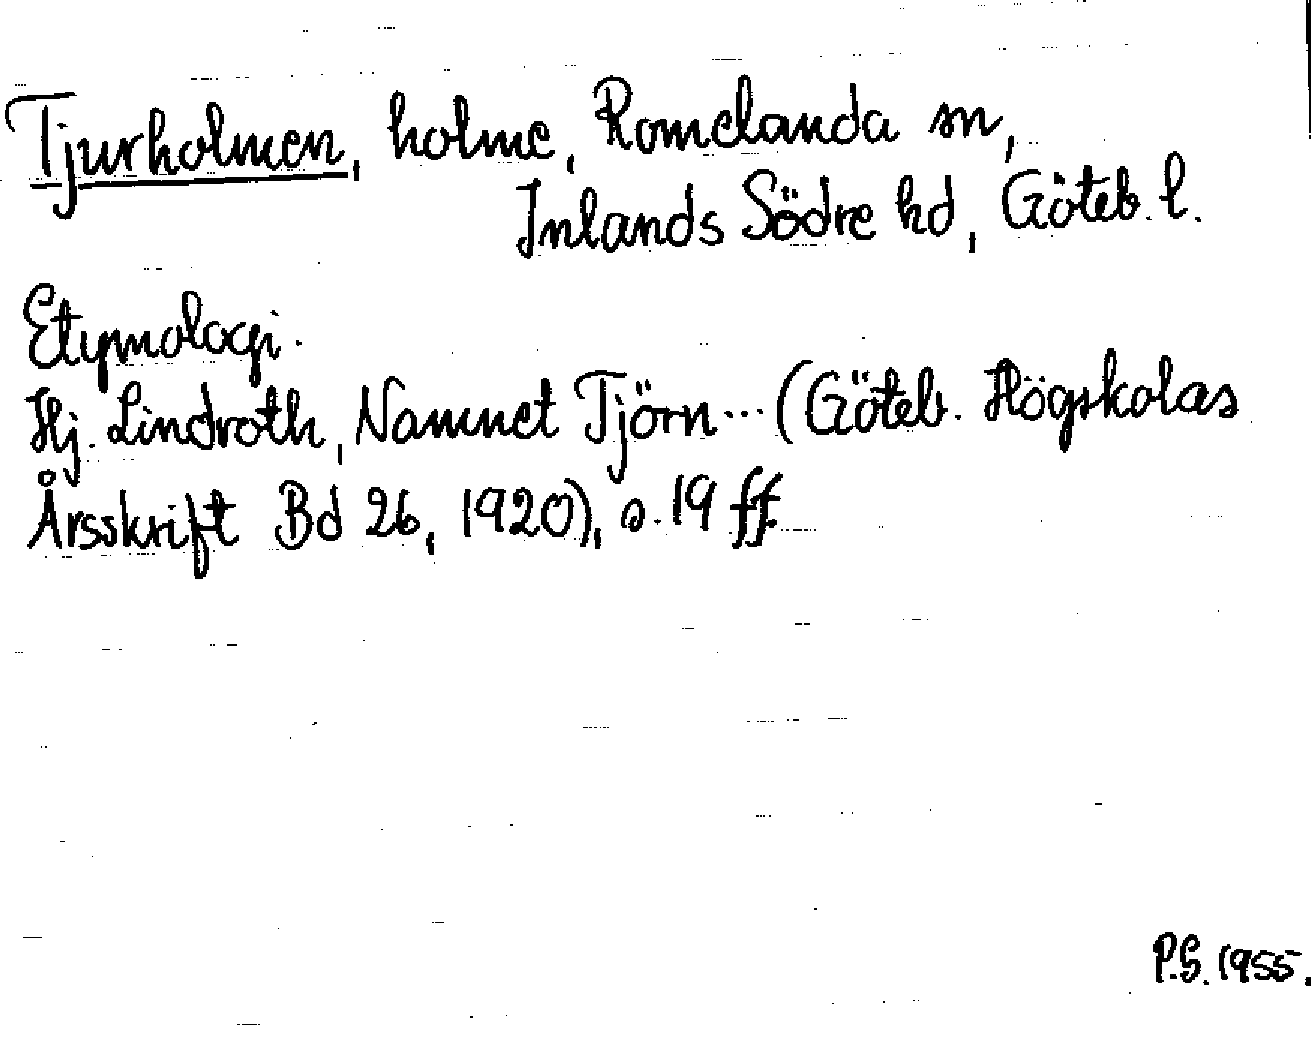 Tjurholmen, holme, Romelanda sn,
Inlands Södre hd, Göteb. l.
Etymologi.
Hj. Lindroth, Namnet Tjörn... (Göteb. Högskolas
Årsskrift Bd 26, 1920), s. 19 ff.
P.G. 1955.